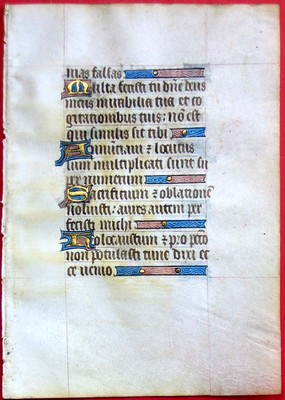 nias falsas
Multa fecisti tu dñe deus
meus mirabilia tua et co
gitationibus tuis: nõ est
qui similis sit tibi
Annūciavi ⁊ locutus
sum multiplicati sunt su
per numerum
Sacrificium ⁊ oblationē
noluisti: aures autem per
fecisti michi
Holocaustum ⁊ pro pctō
non postulasti tunc dixi et
ce venio